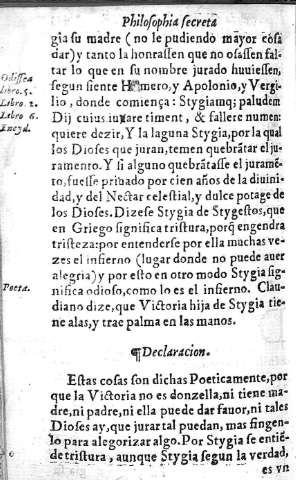 Philosophia secreta
gia su madre (no le pudiendo mayor cosa
dar) y tanto la honrassen que no osassen fal-
tar lo que en su nombre jurado huuiessen,
segun siente Homero, y Apolonio, y Vergi-
lio, donde comiença: Stygiamq; paludem
Dij cuius iurare timent, & fallere numen:
quiere dezir, Y la laguna Stygia, por la qual
los Dioses que juran, temen quebrãtar el ju-
ramento. Y si alguno quebrãtasse el juramẽ-
to, fuesse priuado por cien años de la diuini-
dad, y del Nectar celestial, y dulce potage de
los Dioses. Dizese Stygia de Stygestos, que
en Griego significa tristura, porq̃ engendra
tristeza: por entenderse por ella muchas ve-
zes el infierno (lugar donde no puede auer
alegria) y por esto en otro modo Stygia sig-
nifica odioso, como lo es el infierno. Clau-
diano dize, que Victoria hija de Stygia tie-
ne alas, y trae palma en las manos.
¶Declaracion.
Estas cosas son dichas Poeticamente, por
que la Victoria no es donzella, ni tiene ma-
dre, ni padre, ni ella puede dar fauor, ni tales
Dioses ay, que jurar tal puedan, mas fingen-
lo para alegorizar algo. Por Stygia se entiẽ-
de tristura, aunque Stygia segun la verdad,
es vn
Odissea
libro. 5.
Libro. 2.
Libro 6.
Eneyd.
Poeta.